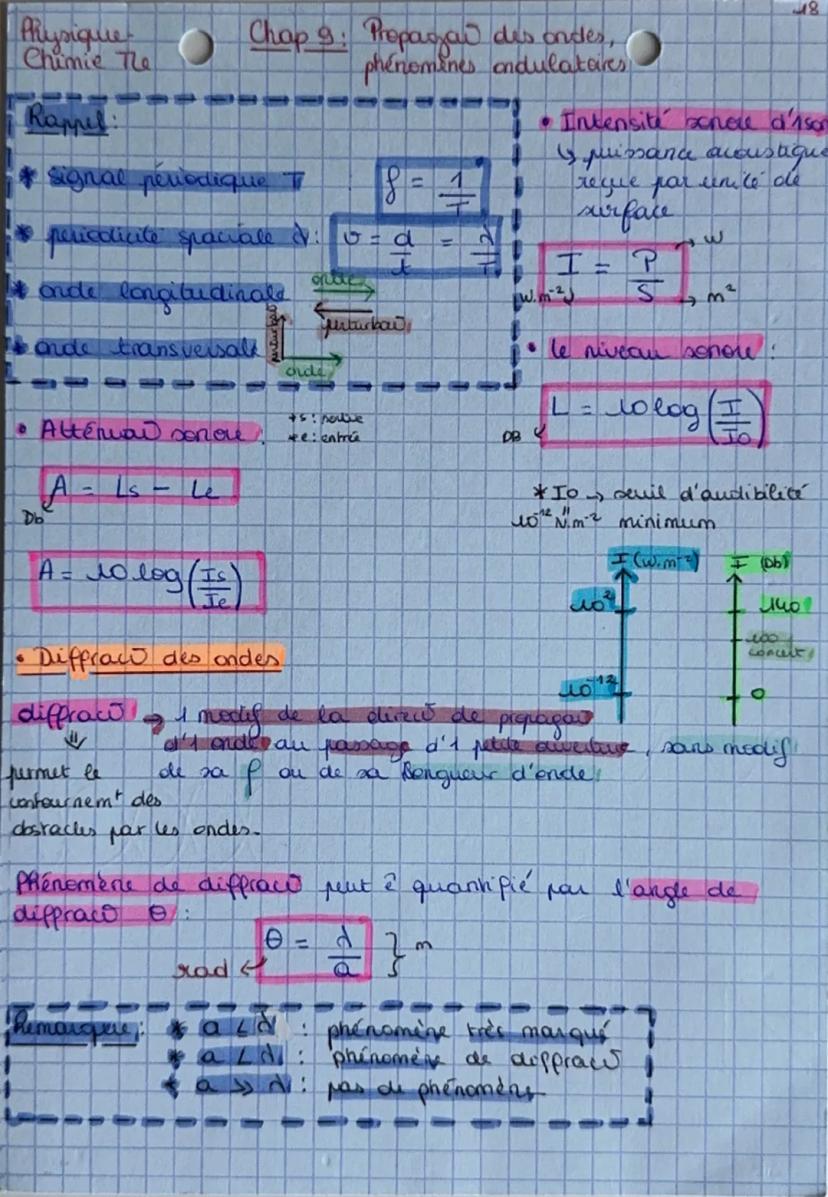 Physique-
Chimie Tle
Chap 9: Propagaõ des ondes,
phénomènes ondulatoires
18
Rappel:
* signal périodique T
f = 1/T
* périodicité spaciale λ: v = d/t = λ/T
* onde longitudinale
onde
perturbaõ
* onde transversale
perturbaõ
onde
• Intensité sonore d'1 son
↳ puissance acoustique
reçue par unité de
surface
I = P/S
W
(W.m⁻²)
m²
• le niveau sonore :
L = 10 log (I/I0)
DB
* I0 → seuil d'audibilité
10⁻¹² W.m⁻² minimum
I (W.m⁻²)
10²
10⁻¹²
I (Db)
140
100
concert
0
• Atténuaõ sonore:
* s : sortie
* e : entrée
A = Ls - Le
Db
A = 10 log (Is/Ie)
• Diffracõ des ondes
diffracõ → 1 modif de la direcõ de propagaõ
d'1 onde au passage d'1 petite ouverture, sans modif
de sa f ou de sa longueur d'onde
⇓
permet le
contournemt des
obstacles par les ondes.
Phénomène de diffracõ peut ê quantifié par l'angle de
diffracõ θ :
θ = λ/a } m
rad
Remarque: * a < λ : phénomène très marqué
* a < λ : phénomène de diffracõ
* a >> λ : pas de phénomène